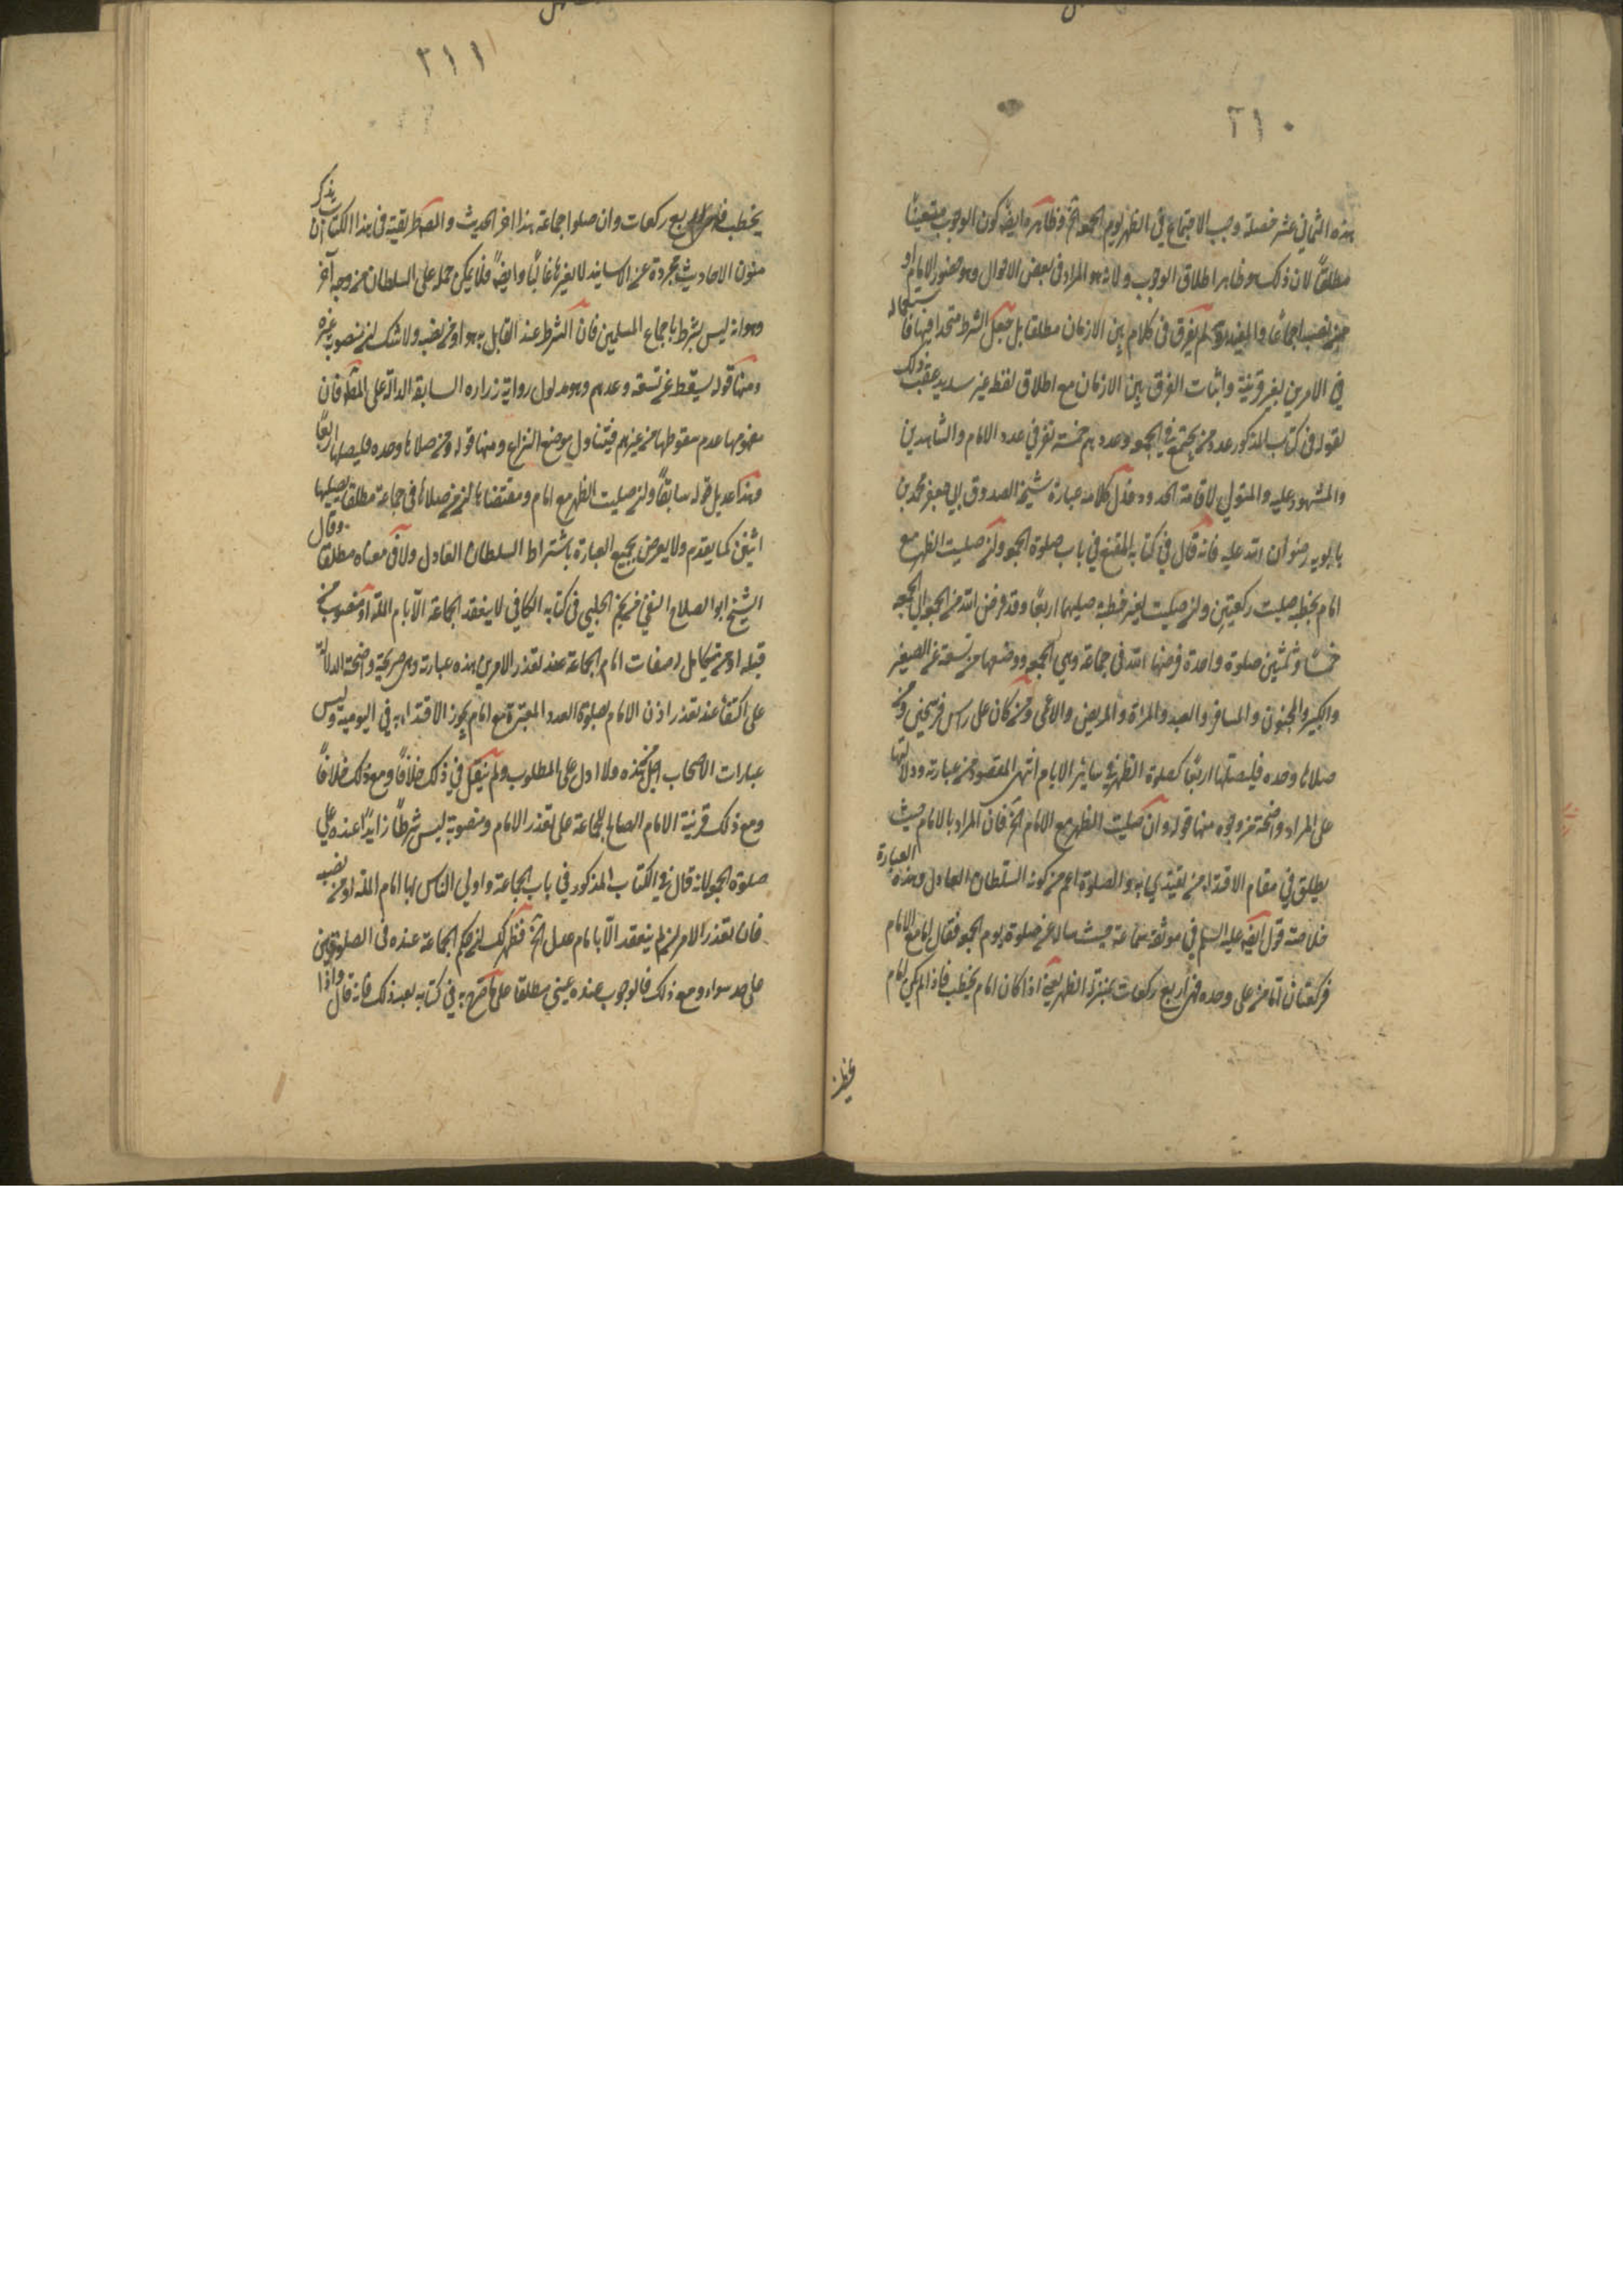 ٢١٠
هذه الثماني عشر خصلة وجب الاجتماع في الظهر يوم الجمعة الخ وظاهره ايضا كون الوجوب متعينا
مطلقا لان ذلك هو ظاهر اطلاق الوجوب ولانه هو المراد في بعض الاحوال وهو حضور الامام او
من نصبه اجماعا والمفيد ره لم يفرق في كلامه بين الازمان مطلقا بل جعل الشرط متحدا فيها فاستعماله
في الامرين بغير قرينة واثبات الفرق بين الازمان مع اطلاق لفظه غير سديد عقب ذلك
بقوله في كتاب المذكور عدد من يجتمع في الجمعة وعددهم خمسة نفر في عدد الامام والشاهدين
والمشهود عليه والمتولي لاقامة الحدود ومثل كلامه عبارة شيخه الصدوق ابي جعفر محمد بن
بابويه رضوان الله عليه فانه قال في كتابه المقنع في باب صلوة الجمعة وان صليت الظهر مع
امام بخطبة صليت ركعتين وان صليت بغير خطبة صليتها اربعا وقد فرض الله من الجمعة الى الجمعة
خمسا وثلثين صلوة واحدة فرضها الله في جماعة وهي الجمعة ووضعها عن تسعة عن الصغير
والكبير والمجنون والمسافر والعبد والمراة والمريض والاعمى ومن كان على راس فرسخين ومن
صلاها وحده فليصلها اربعا كصلوة الظهر في ساير الايام انتهى المقصود من عبارته ودلالتها
على المراد واضحة من وجوه منها قوله وان صليت الظهر مع الامام الخ فان المراد بالامام حيث
يطلق في مقام الاقتداء من يقتدي به في الصلوة اعم من كونه السلطان العادل وهذه العبارة
خلاصة قول ايضه عليه السلم في موثقة سماعة حيث ساله عن صلوة يوم الجمعة فقال اما مع الامام
فركعتان اما من صلى وحده فهي اربع ركعات بمنزلة الظهر يعني اذا كان امام يخطب فاذا لم يكن امام
يخطب
٢١١
يخطب فهي اربع ركعات وان صلوا جماعة هذا اخر الحديث والمصنف طريقته في هذا الكتاب ان يذكر
متون الاحاديث مجردة عن الاسانيد لا يغيرها غالبا وايضا فلا يمكن حمله على السلطان من وجه آخر
وهو انه ليس بشرط باجماع المسلمين فان الشرط عند القايل به هو او من نصبه ولا شك ان منصوبه غيره
ومنها قوله يسقط عن تسعة وعدهم وهو مدلول رواية زرارة السابقة الدالة على المطلوب فان
مفهومها عدم سقوطها عن غيرهم فيتناول موضع النزاع ومنها قوله ومن صلاها وحده فليصلها اربعا
وهذا عديل قوله سابقا وان صليت الظهر مع امام ومقتضاها ان من صلاها في جماعة مطلقا يصليها
اثنين كما يقدم ولا يعرض بجميع العبارة باشتراط السلطان العادل ولا في معناه مطلقا وقال
الشيخ ابو الصلاح التقي بن نجم الحلبي في كتابه الكافي لا ينعقد الجماعة الا بامام الملة او منصوب من
قبله او من يتكامل له صفات امام الجماعة عند تعذر الامرين هذه عبارته وهي صريحة واضحة الدلالة
على اكتفائه عند تعذر اذن الامام بصلوة العدد المعتبرة مع امام يجوز الاقتداء به في اليومية وليس
عبارات الاصحاب اجل من هذه ولا ادل على المطلوب ولم ينقل في ذلك خلافا ومع ذلك خلافا
ومع ذلك قرينة الامام الصالح للجماعة على تعذر الامام ومنصوبه ليس شرطا زايدا عنده على
صلوة الجمعة لانه قال في الكتاب المذكور في باب الجماعة واولى الناس بها امام الملة او من نصبه
فان تعذر الامران لم ينعقد الا بامام عدل الخ فظهر لك ان حكم الجماعة عنده في الصلوتين
على حد سواء ومع ذلك فالوجوب عنده عيني مطلقا على ما صرح به في كتابه بعد ذلك فانه قال واذا